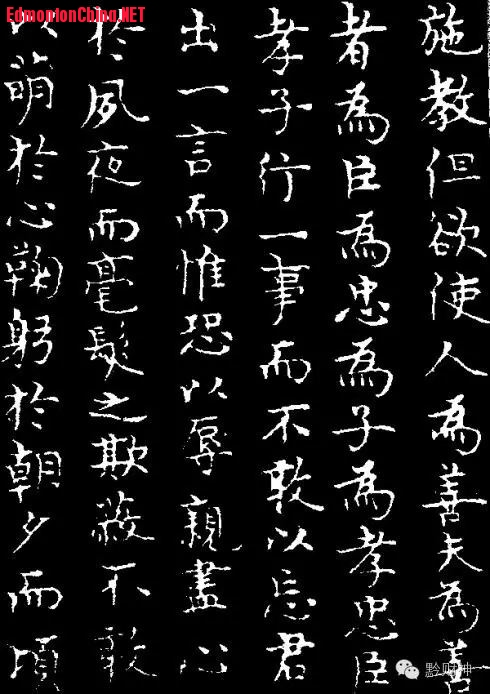 EdmontonChina.NET
施教但欲使人為善夫為善
者為臣為忠為子為孝忠臣
孝子行一事而不敢以忘君
出一言而惟恐以辱親盡心
於夙夜而毫髮之欺蔽不敢
以萌於心鞠躬於朝夕而頃
黔财神